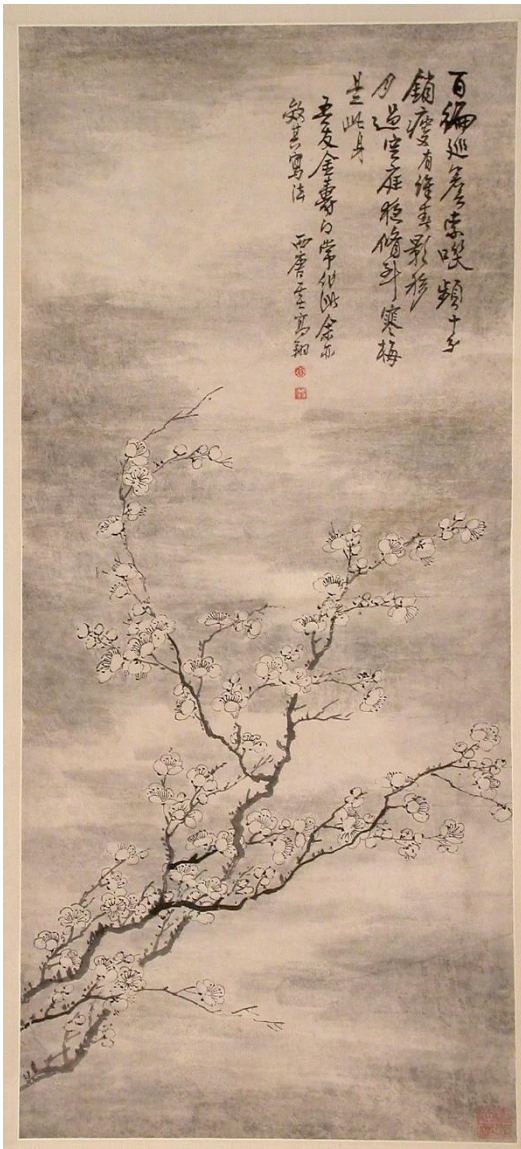 百徧巡簷索咲頻十分
銷瘦有誰春影移
月過空庭夜脩到寒梅
是此身
吾友金壽門常作此余亦
效其寫法 西唐高翔